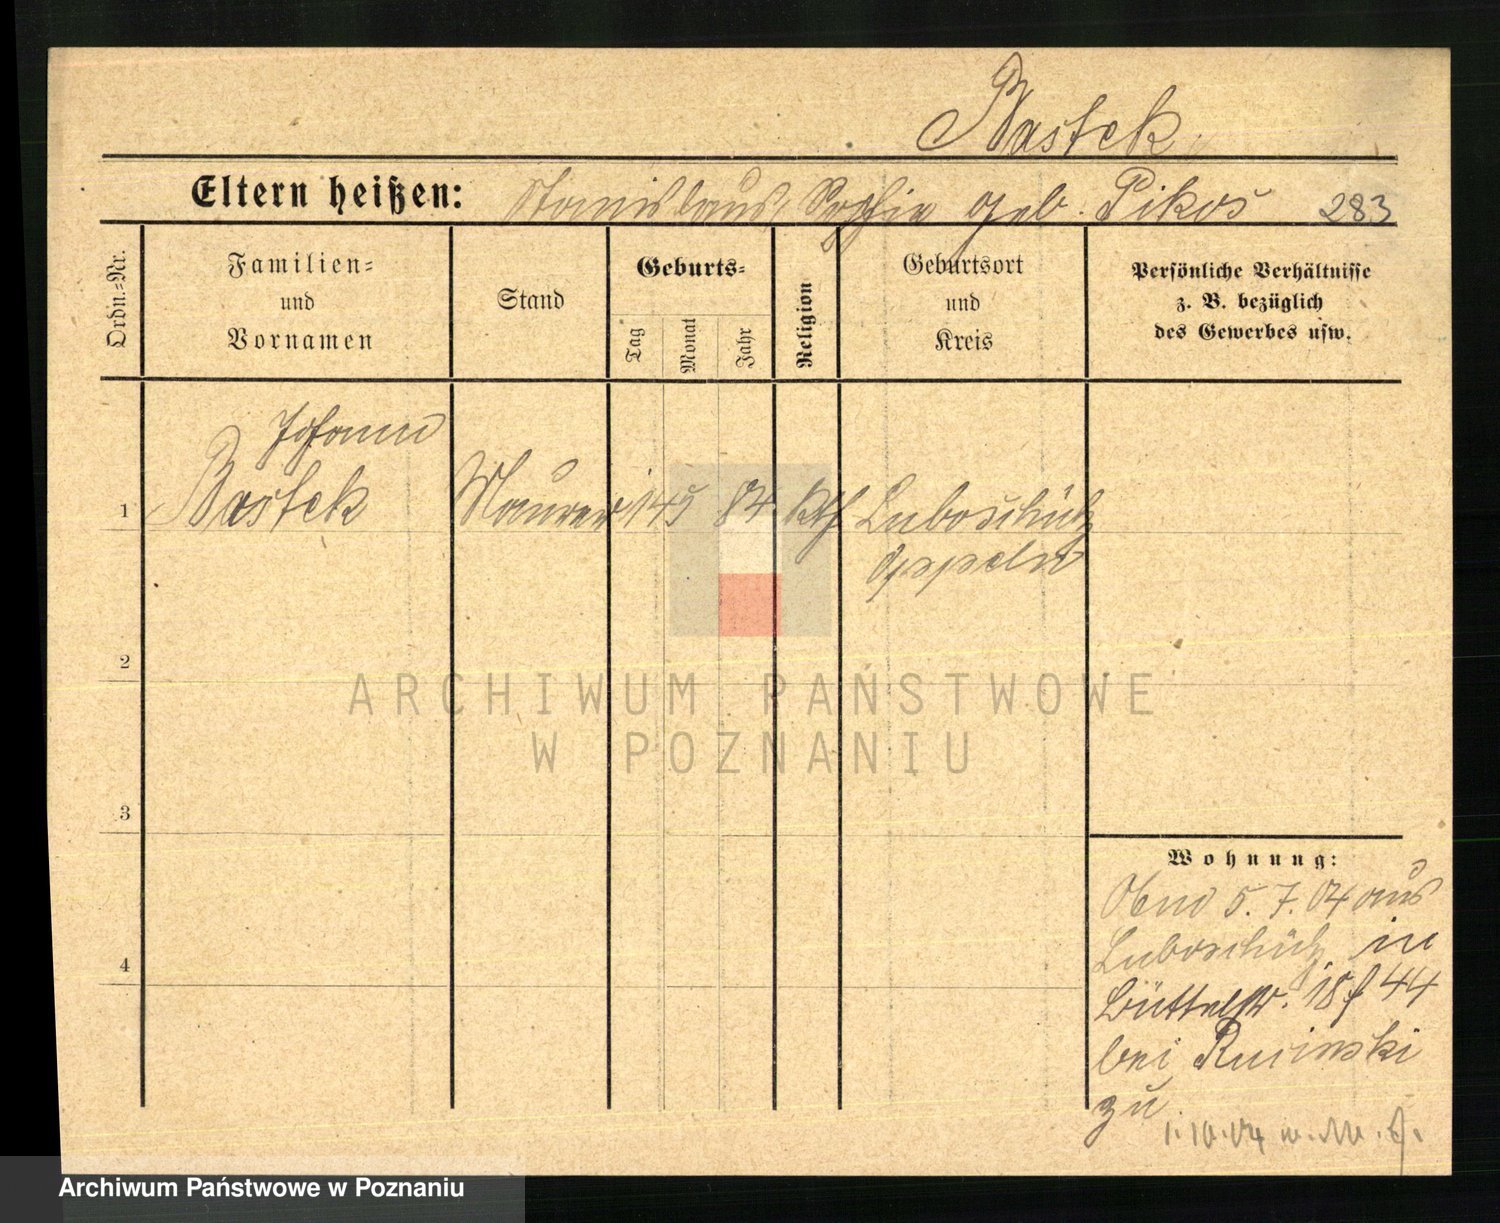 Bastek
Eltern heißen: Stanislaus, Sophie geb. Pikos 283
Ordn.-Nr.
Familien-
und
Vornamen
Stand
Geburts-
Tag
Monat
Jahr
Religion
Geburtsort
und
Kreis
Persönliche Verhältnisse
z. B. bezüglich
des Gewerbes usw.
Johann
1 Bastek Maurer 14 5 84 kth Luboschütz
Oppeln
2
3
4
Wohnung:
5. 7. 04 aus
Luboschütz in
Büttelstr. 18 f 44
bei Rusinski
zu
1.10.04
ARCHIWUM PAŃSTWOWE
W POZNANIU
Archiwum Państwowe w Poznaniu